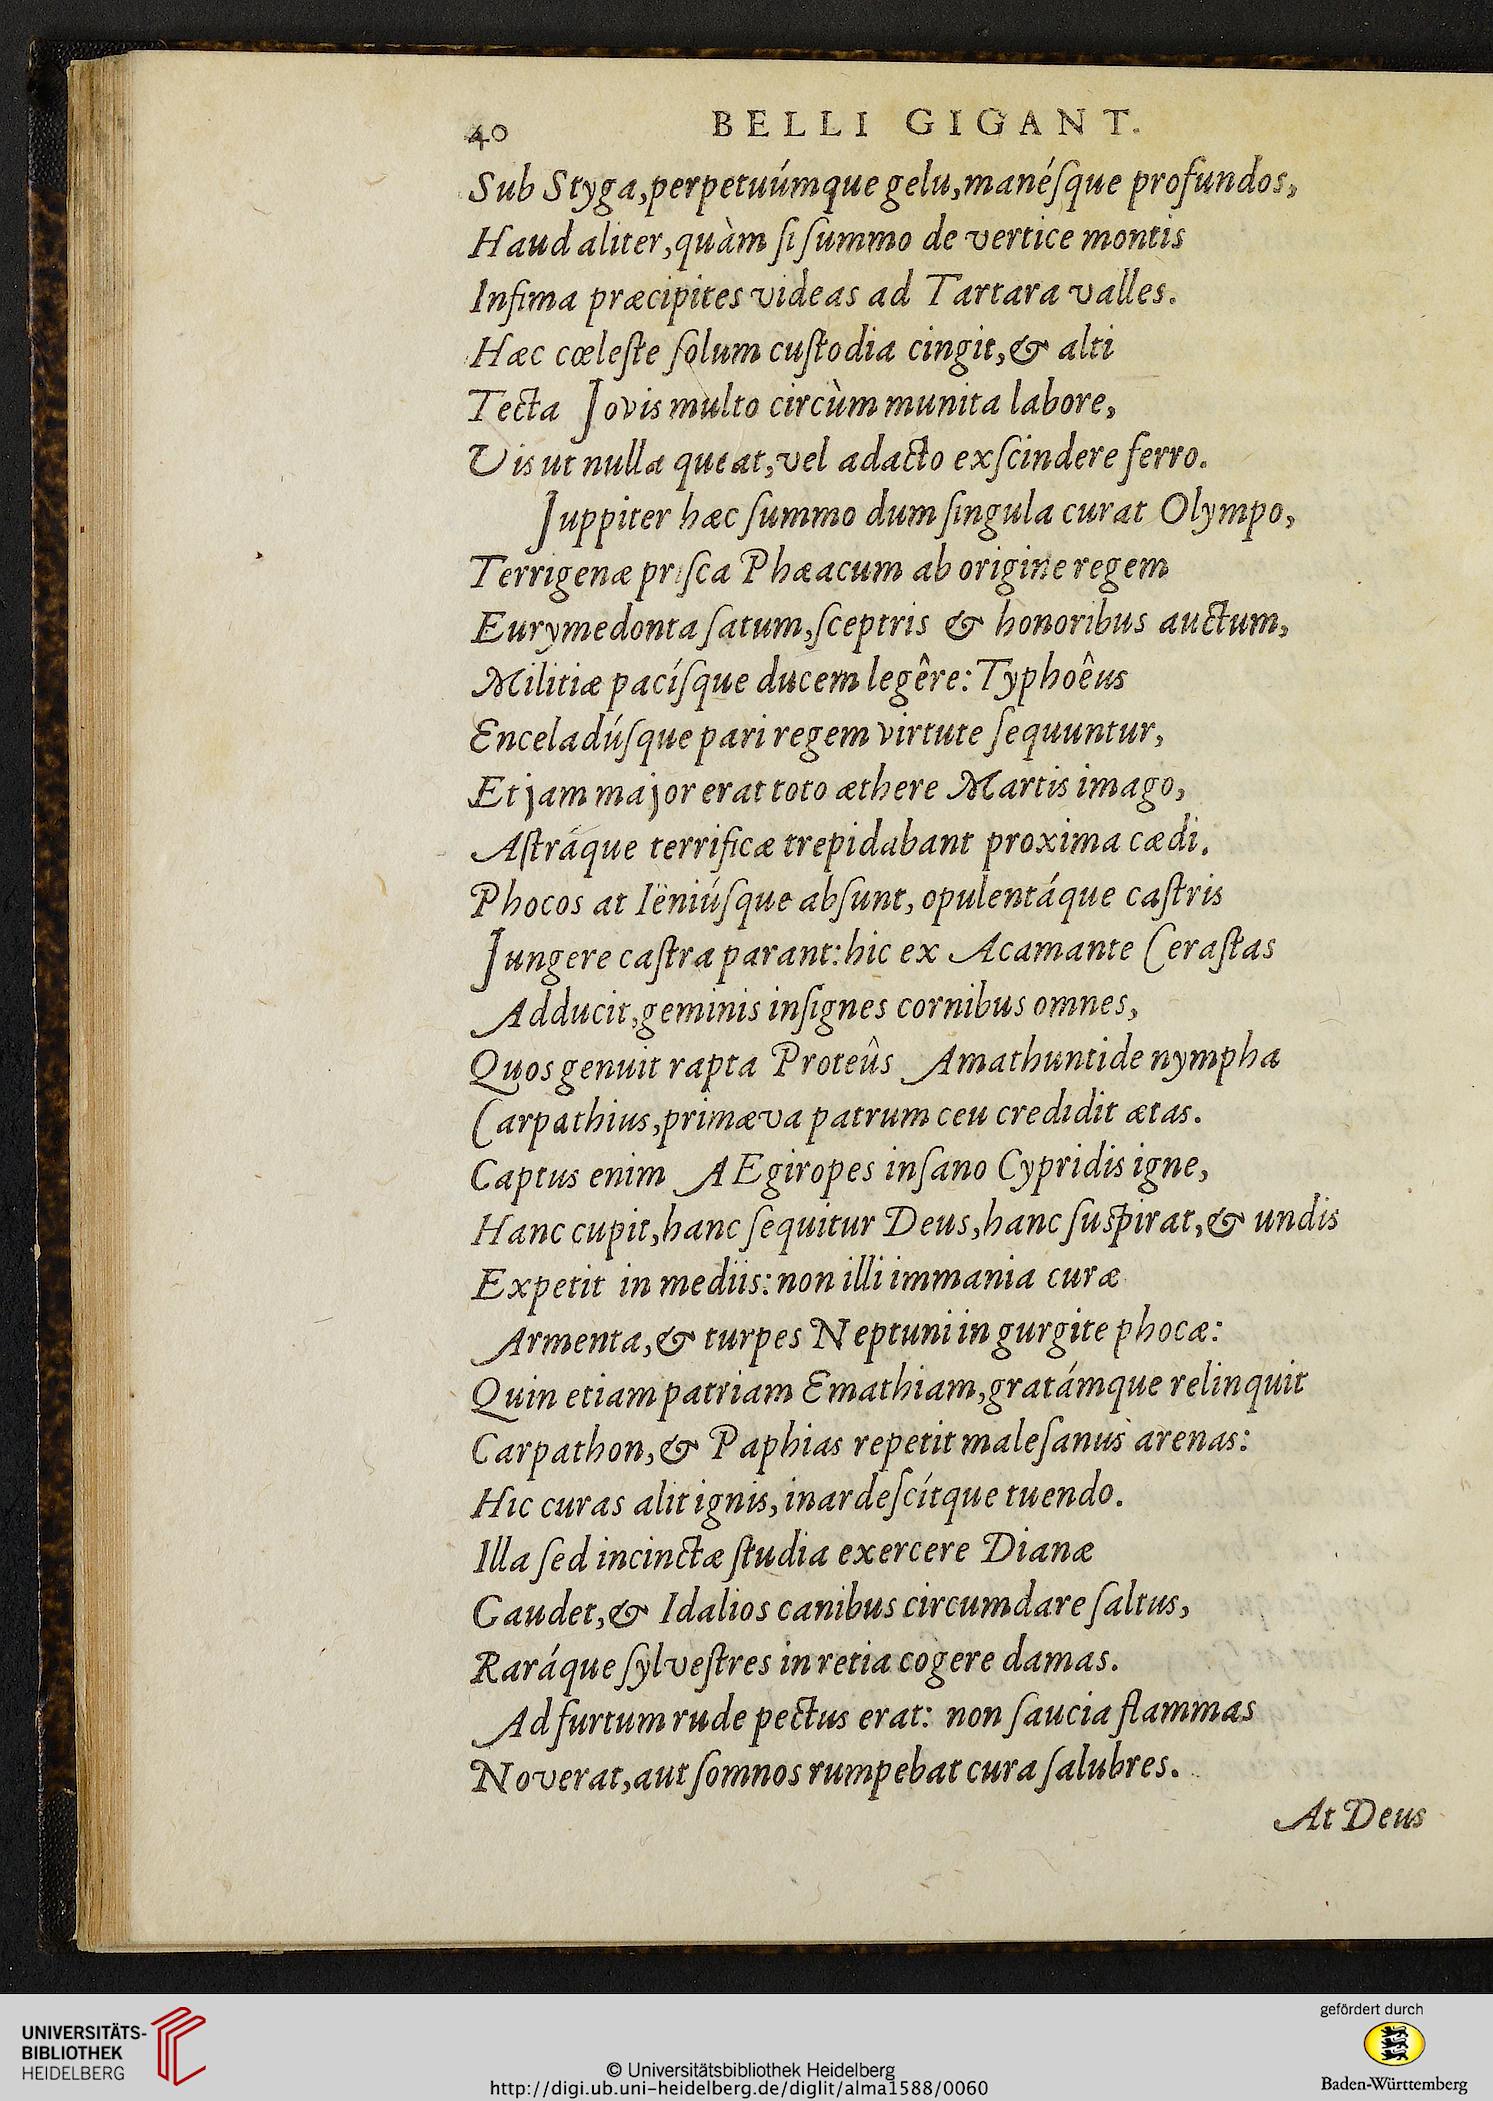 40 BELLI GIGANT.
Sub Styga, perpetuúmque gelu, manéſque profundos,
Haud aliter, quàm ſi ſummo de vertice montis
Infima præcipites videas ad Tartara valles.
Hæc cœleſte ſolum cuſtodia cingit, & alti
Tecta Jovis multo circùm munita labore,
Vis ut nulla queat, vel adacto exſcindere ferro.
Juppiter hæc ſummo dum ſingula curat Olympo,
Terrigenæ priſca Phæacum ab origine regem
Eurymedonta ſatum, ſceptris & honoribus auctum,
Militiæ pacíſque ducem legêre: Typhoêus
Enceladúſque pari regem virtute ſequuntur,
Et jam major erat toto æthere Martis imago,
Aſtráque terrificæ trepidabant proxima cædi.
Phocos at Iëniúſque abſunt, opulentáque caſtris
Jungere caſtra parant: hic ex Acamante Ceraſtas
Adducit, geminis inſignes cornibus omnes,
Quos genuit rapta Proteûs Amathuntide nympha
Carpathius, primæva patrum ceu credidit ætas.
Captus enim AEgiropes inſano Cypridis igne,
Hanc cupit, hanc ſequitur Deus, hanc ſuſpirat, & undis
Expetit in mediis: non illi immania curæ
Armenta, & turpes Neptuni in gurgite phocæ:
Quin etiam patriam Emathiam, gratámque relinquit
Carpathon, & Paphias repetit maleſanus arenas:
Hic curas alit ignis, inardeſcítque tuendo.
Illa ſed incinctæ ſtudia exercere Dianæ
Gaudet, & Idalios canibus circumdare ſaltus,
Raráque ſylveſtres in retia cogere damas.
Ad furtum rude pectus erat: non ſaucia flammas
Noverat, aut ſomnos rumpebat cura ſalubres.
At Deus
UNIVERSITÄTS-
BIBLIOTHEK
HEIDELBERG
© Universitätsbibliothek Heidelberg
http://digi.ub.uni-heidelberg.de/diglit/alma1588/0060
gefördert durch
Baden-Württemberg